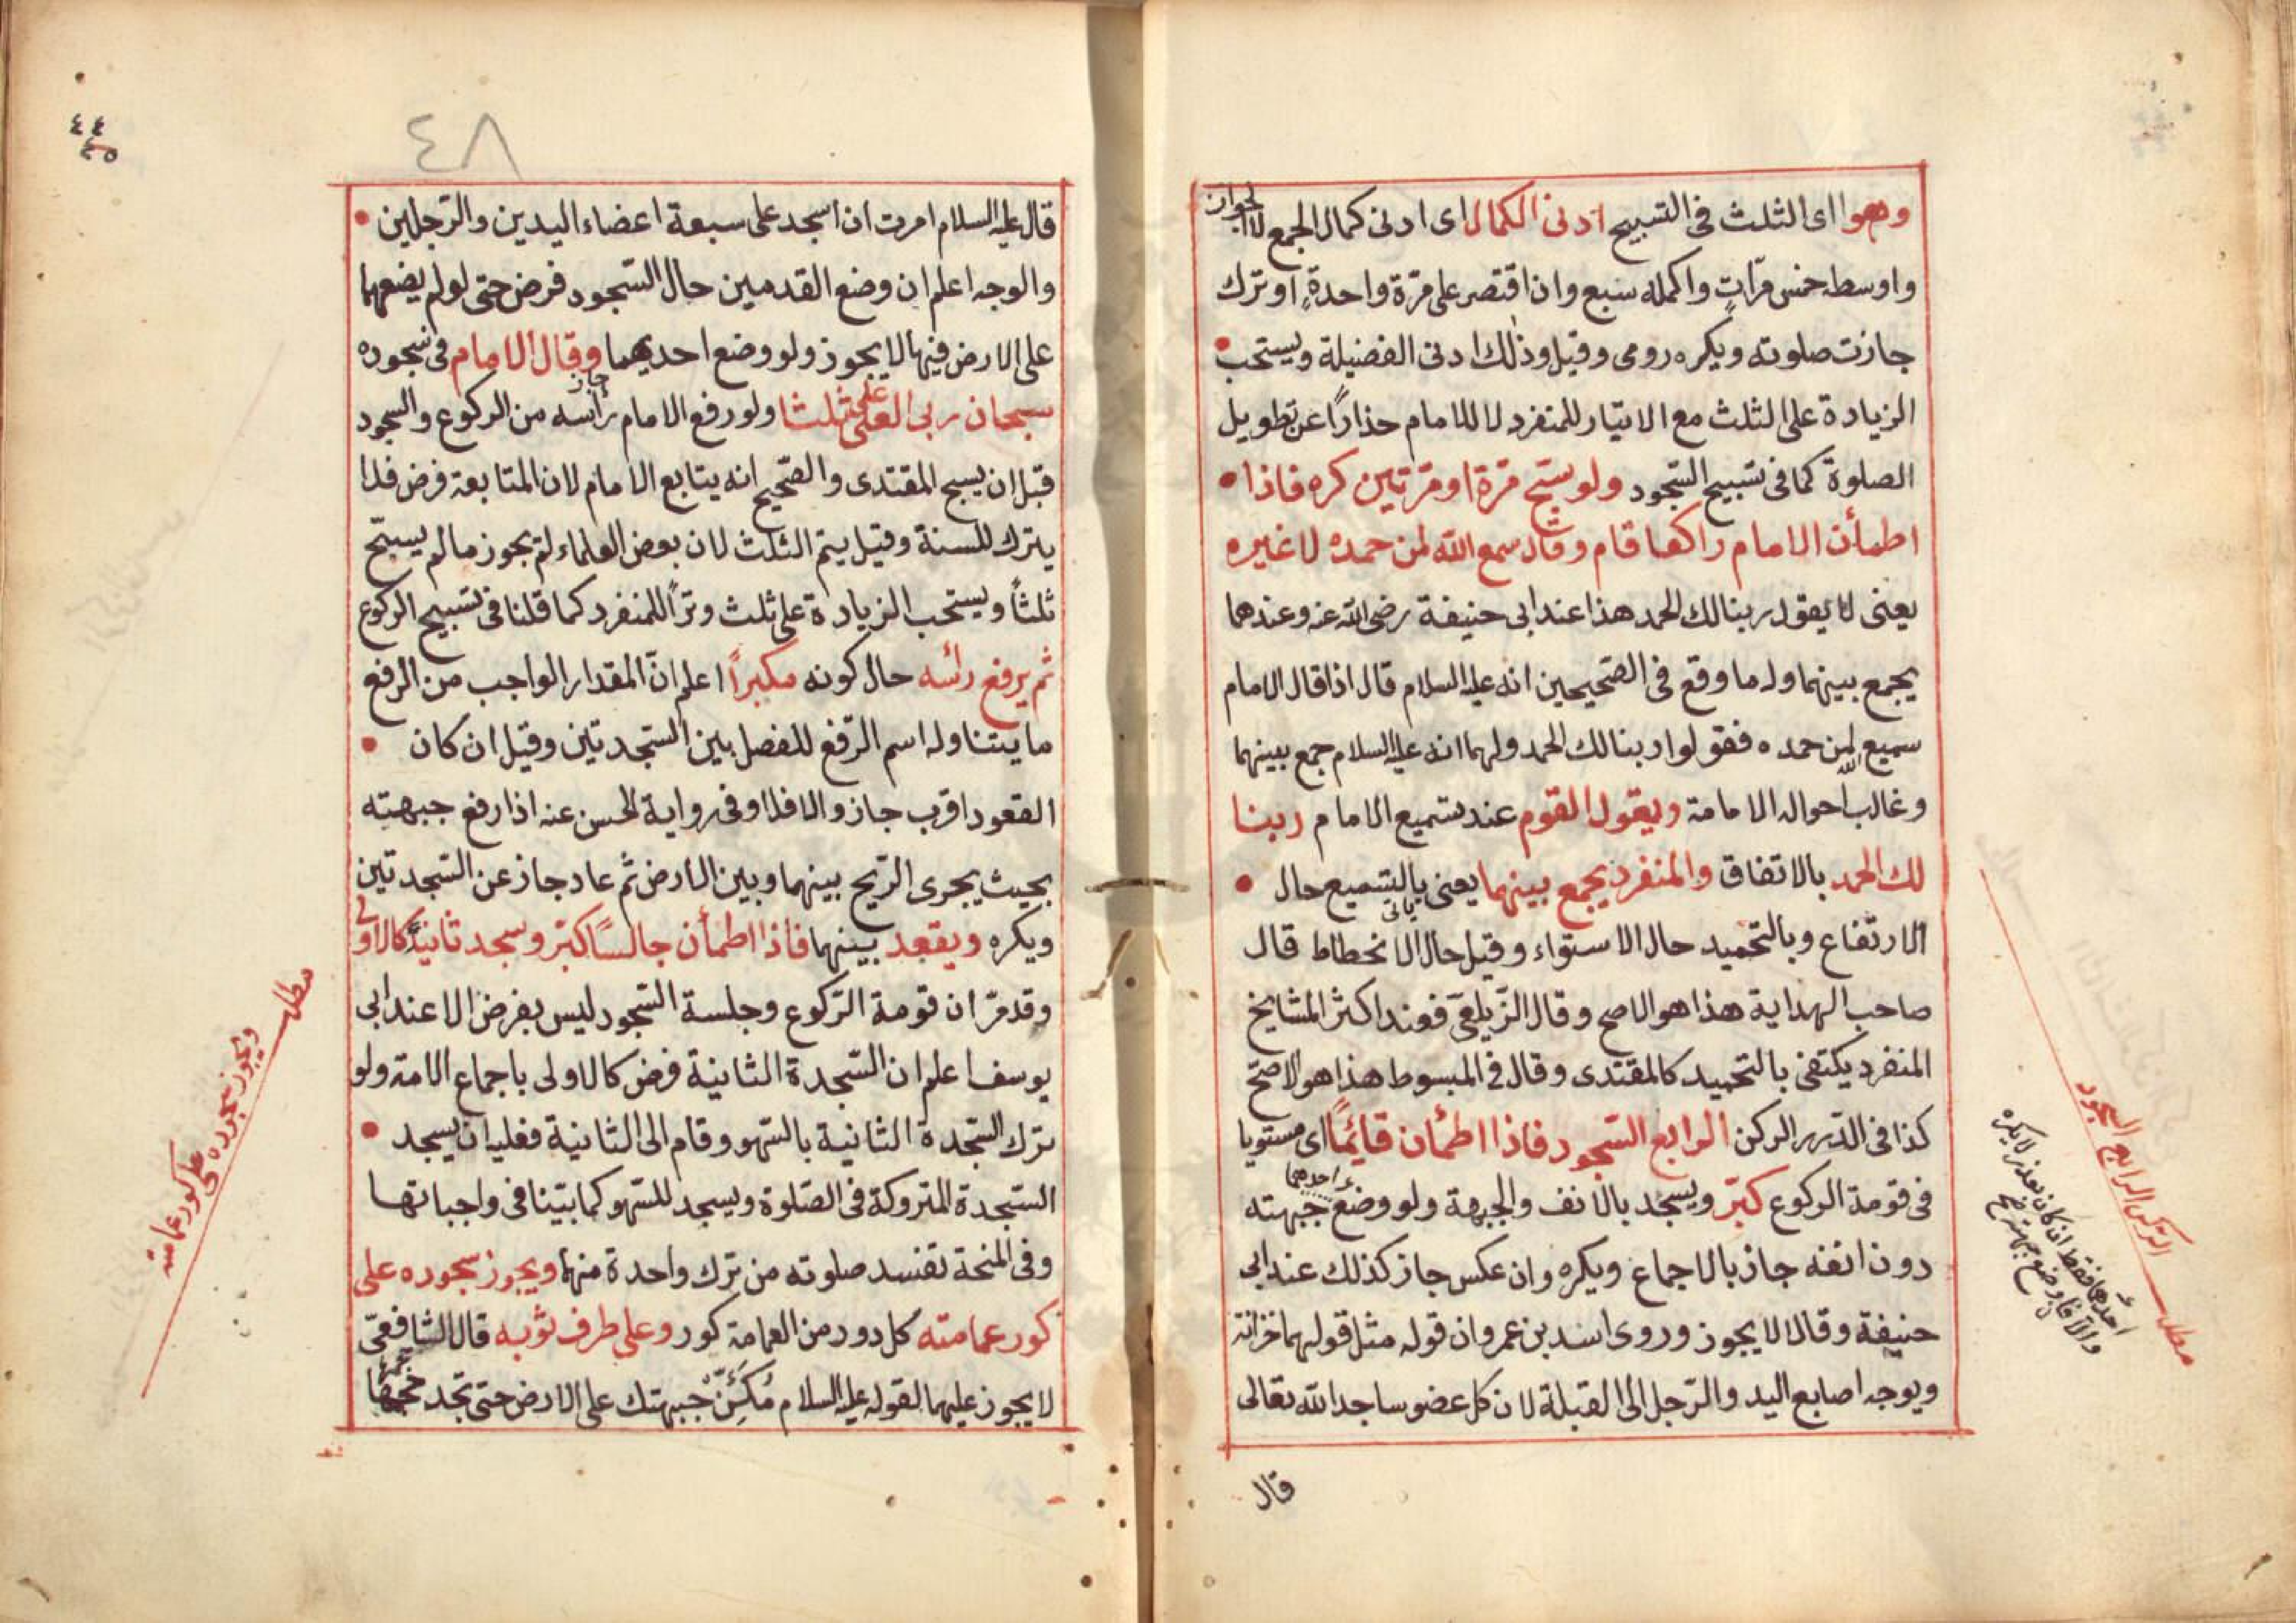 وهو اى الثلث فى التسبيح ادنى الكمال اى ادنى كمال الجمع لا الجواز
واوسطه خمس مرّات واكمله سبع وان اقتصر على مرّة واحدةٍ او ترك
جازت صلوته ويكره رومى وقيل وذلك ادنى الفضيلة ويستحب
الزيادة على الثلث مع الايتار للمنفرد لا للامام حذارًا عن تطويل
الصلوة كما فى تسبيح السّجود ولو سبّح مرّة او مرّتين كره فاذا
اطمأن الامام راكعا قام وقال سمع الله لمن حمده لا غيره
يعنى لا يقول ربنا لك الحمد هذا عند ابى حنيفة رضى الله عنه وعندهما
يجمع بينهما وله ما وقع فى الصّحيحين انه عليه السلام قال اذا قال الامام
سميع الله لمن حمده فقولوا ربنا لك الحمد ولهما انه عليه السلام جمع بينهما
وغالب احواله الامامة ويقول القوم عند تسميع الامام ربنا
لك الحمد بالاتفاق والمنفرد يجمع بينهما يعنى ياتى بالتسميع حال
الارتفاع وبالتحميد حال الاستواء وقيل حال الانخطاط قال
صاحب الهداية هذا هو الاصح وقال الزّيلعىّ فعند اكثر المشايخ
المنفرد يكتفى بالتحميد كالمقتدى وقال فى المبسوط هذا هو الاصحّ
كذا فى الدّرر الركن الرابع السّجود فاذا اطمأن قائمًا اى مستويا
فى قومة الركوع كبّر ويسجد بالانف والجبهة ولو وضع احدهما جبهته
دون انفه جاز بالاجماع ويكره وان عكس جاز كذلك عند ابى
حنيفة وقالا لا يجوز وروى اسد بن عمر وان قوله مثل قولهما خزانة
ويوجه اصابع اليد والرّجل الى القبلة لان كل عضو ساجد الله تعالى
قال
مطلب الرّكن الرابع السجود
احدهما فقط ان كان بعذر لا يكره
٤٨
٤٤
٤٥
قال عليه السلام امرت ان اسجد على سبعة اعضاء اليدين والرّجلين
والوجه اعلم ان وضع القدمين حال السّجود فرض حتى لو لم يضعهما
على الارض فيها لا يجوز ولو وضع احديهما جاز وقال الامام فى سجوده
سبحان ربى العلى ثلثا ولو رفع الامام رأسه من الركوع والسجود
قبل ان يسبح المقتدى والصّحيح انه يتابع الامام لان المتابعة فرض فلا
يترك للسنة وقيل يتم الثلث لان بعض العلماء لم يجوز ما لم يسبّح
ثلثاً ويستحب الزيادة على ثلث وتراً للمنفرد كما قلنا فى تسبيح الركوع
ثم يرفع رائسه حال كونه مكبراً اعلم انّ المقدار الواجب من الرفع
ما يتناوله اسم الرّفع للفصل بين السّجدتين وقيل ان كان
القعود اقرب جاز والا فلا وفى رواية الحسن عنه اذا رفع جبهته
بحيث يجرى الرّيح بينهما وبين الارض ثم عاد جاز عن السّجدتين
ويكره ويقعد بينهما فاذا اطمأن جالسًا كبّر وسجد ثانيةً كالاولى
وقد مرّ ان قومة الرّكوع وجلسة السّجود ليس بفرض الا عند ابى
يوسف اعلم ان السّجدة الثانية فرض كالاولى باجماع الامة ولو
ترك السّجدة الثانية بالسّهو وقام الى الثانية فعليه ان يسجد
السّجدة المتروكة فى الصّلوة ويسجد للسّهو كما بيّنا فى واجباتها
وفى المنحة تفسد صلوته من ترك واحدة منها ويجوز سجوده على
كور عمامته كل دور من العمامة كور وعلى طرف ثوبه قال الشافعىّ
لا يجوز عليهما لقوله عليه السلام مَكِّنْ جبهتك على الارض حتى تجد حجمها
مطلب ويجوز سجوده على كور عمامته